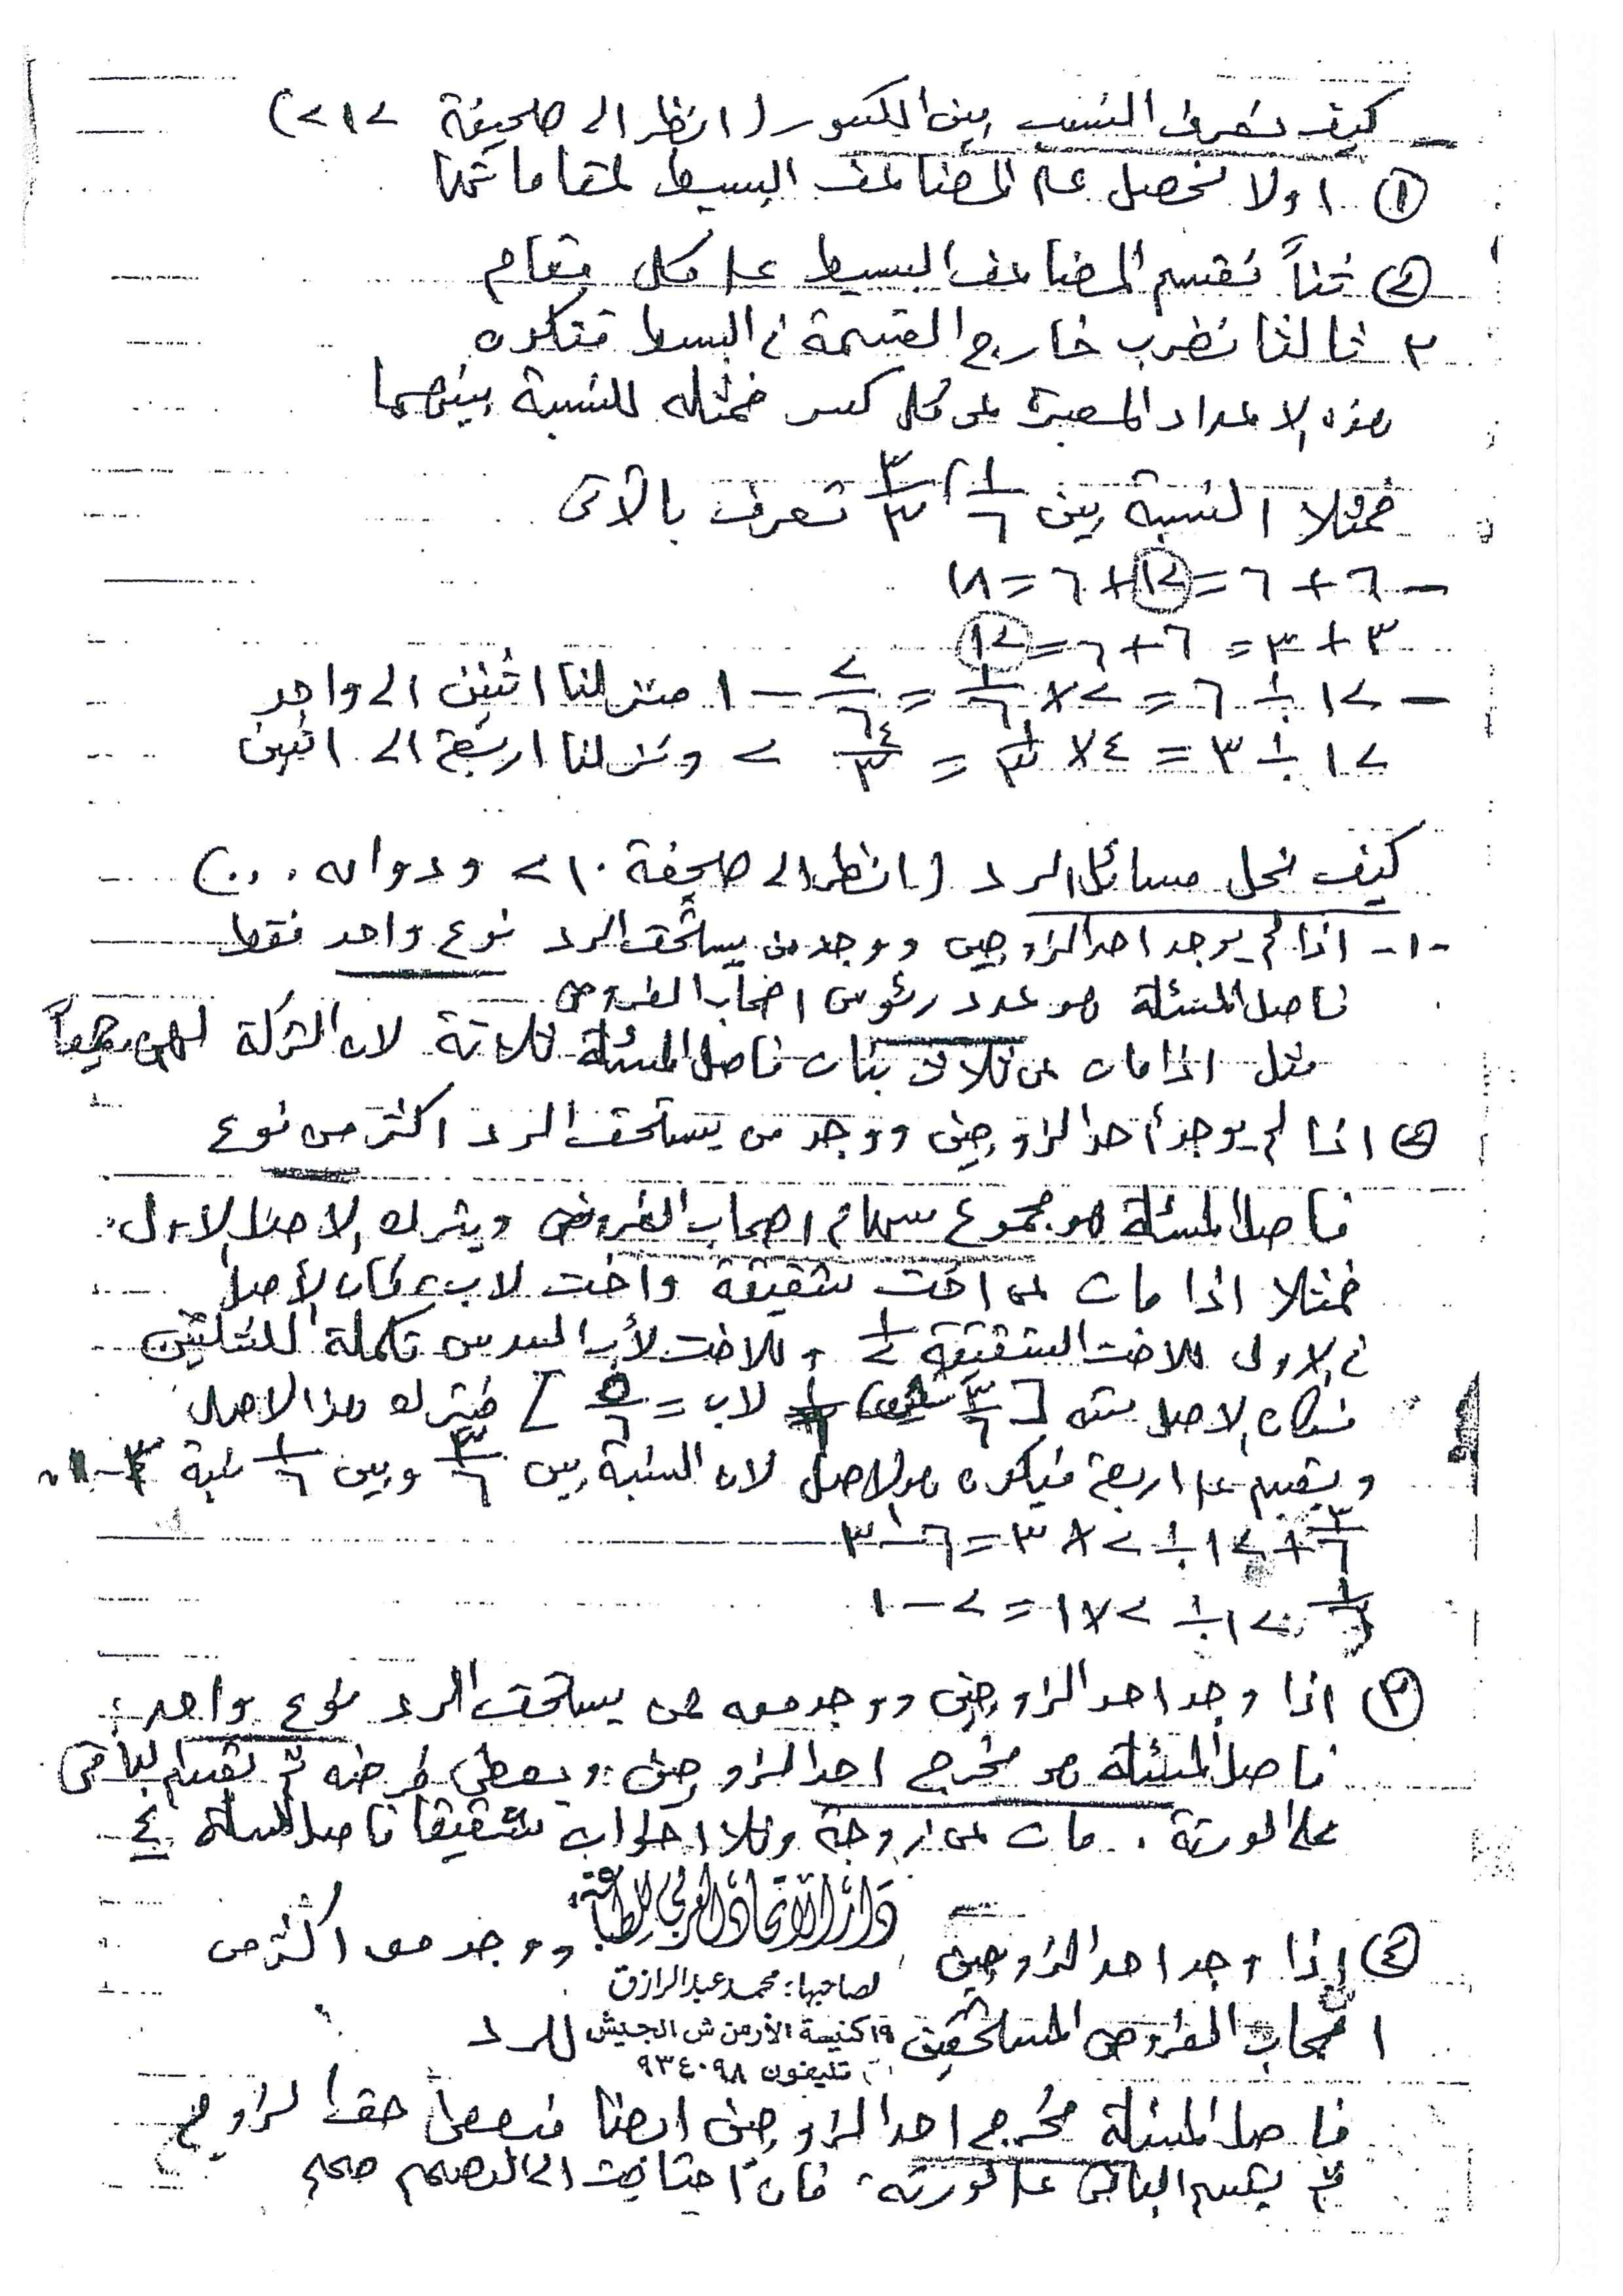 كيف نعرف النسب بين الكسور (انظر الى صحيفة ٢١٢)
① اولا نحصل على المضاعف البسيط لمقاماتها
② ثنياً نقسم المضاعف البسيط على كل مقام
٣ ثالثا نضرب خارج القسمة فى البسط فتكون
هذه الاعداد المعبرة عن كل كسر ممثله للنسبة بينهما
فمثلا النسبة بين ١/٦ ، ٣/٣ تعرف بالآتى
- ٦ + ٦ = ١٢ + ٦ = ١٨
٣ + ٣ = ٦ + ٦ = ١٢
- ١٢ ÷ ٦ = ٢ × ١/٦ = ٢/٦ - ١ متنزلنا اثنين الى واحد
١٢ ÷ ٣ = ٤ × ١/٣ = ٤/٣ ٢ ونزلنا اربعة الى اثنين
كيف نحل مسائل الرد (انظر الى صحيفة ٢١٠ ودوانه ...)
-١- اذا لم يوجد احد الزوجين ووجد من يستحق الرد نوع واحد فقط
فاصل المسئلة هو عدد رئوس اصحاب الفروض
مثل اذا مات عن ثلاث بنات فاصل المسئلة ثلاثة لان التركة لهن جميعاً
② اذا لم يوجد أحد الزوجين ووجد من يستحق الرد اكثر من نوع
فاصل المسئلة هو مجموع سهام اصحاب الفروض ويترك الاصل الاول
فمثلا اذا مات عن اخت شقيقة واخت لاب فكان الأصل
فى الاولى للاخت الشقيقة ١/٢ وللاخت لأب السدس تكملة للثلثين
فكان الاصل سته [ ٣/٦ ١/٦ لاب = ٥/٦ ] فيترك هذا الاصل
ويقسم على اربعة فيكون هو الاصل لان النسبة بين ٣/٦ وبين ١/٦ نسبة ٣-١
٣/٦ + ١٢ ÷ ٢ × ٣ = ٦ - ٣
١/٦ ١٢ ÷ ٢ × ١ = ٢ - ١
③ اذا وجد احد الزوجين ووجد معه من يستحق الرد نوع واحد
فاصل المسئلة هو مخرج احد الزوجين ويعطى فرضه ثم نقسم الباقى
على الورثة . مات عن زوجة وثلا اخوات شقيقا فاصل المسئلة ٤
دار الاتحاد العربي للطباعة
④ إذا وجد احد الزوجين ووجد معه اكثر من
لصاحبها: محمد عبد الرازق
اصحاب الفروض المستحقين للرد
١٩ كنيسة الأرمن ش الجيش
تليفون ٩٣٤٠٩٨
فاصل المسئلة مخرج احد الزوجين ايضا فيعطى حقه الزوج
ثم يقسم الباقى على الورثة. فان احتاجت الى التصحيح صححت